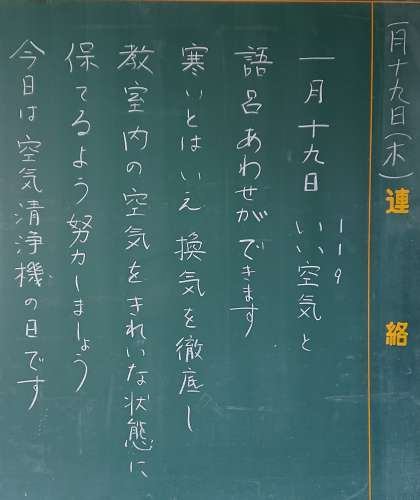 一月十九日(木)
連絡
一月十九日 いい空気と
119
語呂あわせができます
寒いとはいえ 換気を徹底し
教室内の空気をきれいな状態に
保てるよう努力しましょう
今日は空気清浄機の日です